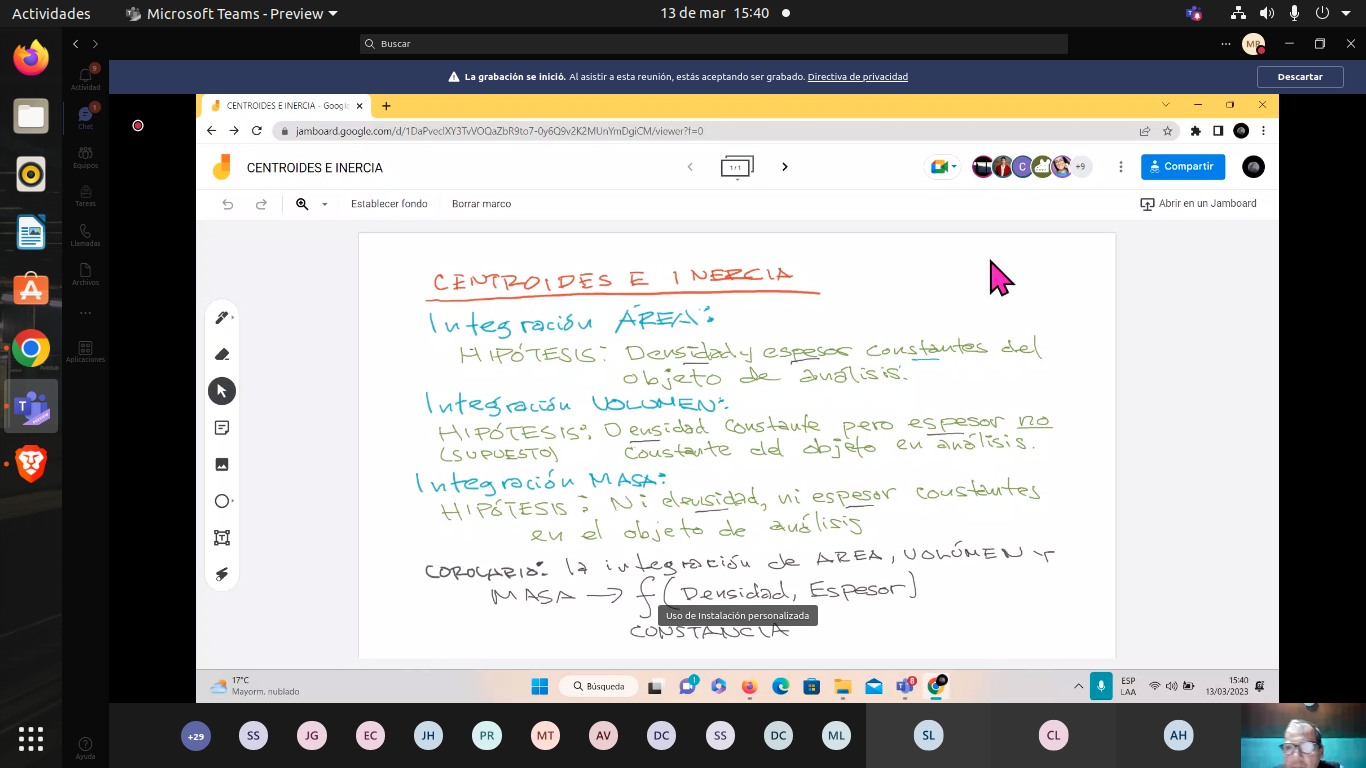 Actividades
Microsoft Teams - Preview
13 de mar 15:40
Buscar
MR
9
Actividad
1
Chat
Equipos
Tareas
Llamadas
Archivos
Aplicaciones
Ayuda
La grabación se inició. Al asistir a esta reunión, estás aceptando ser grabado. Directiva de privacidad
Descartar
CENTROIDES E INERCIA - Google
jamboard.google.com/d/1DaPvecIXY3TvVOQaZbR9to7-0y6Q9v2K2MUnYmDgiCM/viewer?f=0
CENTROIDES E INERCIA
1/1
C
+9
Compartir
Establecer fondo
Borrar marco
Abrir en un Jamboard
CENTROIDES E INERCIA
Integración ÁREA:
HIPÓTESIS: Densidad y espesor constantes del
objeto de análisis.
Integración VOLUMEN:
HIPÓTESIS: Densidad constante pero espesor no
(SUPUESTO) constante del objeto en análisis.
Integración MASA:
HIPÓTESIS: Ni densidad, ni espesor constantes
en el objeto de análisis
COROLARIO: la integración de AREA, VOLÚMEN Y
MASA → f(Densidad, Espesor)
Uso de Instalación personalizada
CONSTANCIA
17°C
Mayorm. nublado
Búsqueda
1
8
ESP
LAA
15:40
13/03/2023
+29
SS
JG
EC
JH
PR
MT
AV
DC
SS
DC
ML
SL
CL
AH